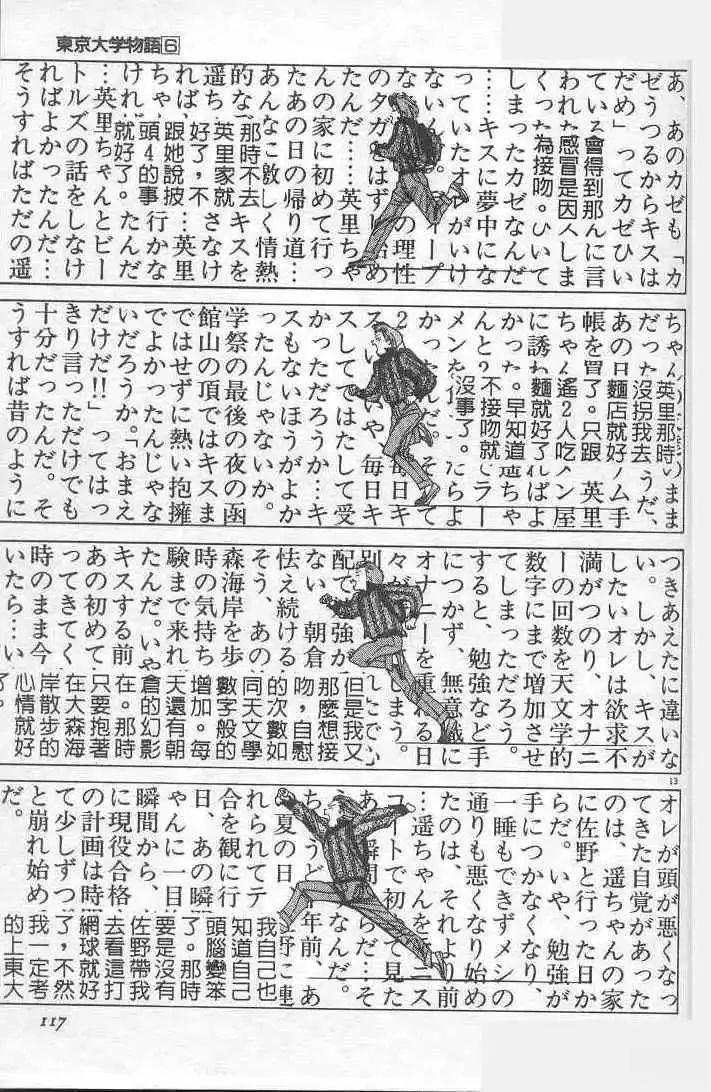 東京大学物語6
あ、あのカゼも「カ
ゼうつるからキスは
だめ」ってカゼひい
ている
んに言
われた
しま
くった
ひいて
會得到那
感冒是因
為接吻。
しまったカゼなんだ
……キスに夢中にな
っていたオレがいけ
ない
ープ
の理性
のタガをはず
し始め
たんだ……英里ちゃ
んの家に初めて行っ
たあの日の帰り道…
あんなに激しく情熱
的な
キスを
遥ち
さなけ
れば、
…英里
ちゃ
行かな
けれ
たんだ
那時不去
英里家就
好了，不
跟她說披
頭4的事
就好了。
…英里ちゃんとビー
トルズの話をしなけ
ればよかったんだ…
そうすればただの遥
ちゃん
のまま
だった
うだ、
あの日
ム手
帳を買
英里
ちゃん
ン屋
に誘わ
ればよ
かった。
遥ちゃ
んと2
ラー
メンを
たらよ
英里那時
沒拐我去
麵店就好
了。只跟
遙2人吃
麵就好了
。早知道
不接吻就
沒事了。
かった
だ。そ
て
毎日キ
いや、毎日キ
スしてではたして受
かっただろうか…キ
スもないほうがよか
ったんじゃないか。
学祭の最後の夜の函
館山の頂ではキスま
ではせずに熱い抱擁
でよかったんじゃな
いだろうか。「おまえ
だけだ!!」ってはっ
きり言っただけでも
十分だったんだ。そ
うすれば昔のように
つきあえたに違いな
い。しかし、キスが
したいオレは欲求不
満がつのり、オナニ
ーの回数を天文学的
数字にまで増加させ
てしまっただろう。
すると、勉強など手
につかず、無意識に
オナニーを重ねる日
々が
しまう。
配で勉強が
ない
朝倉
怯え続ける
そう、あの
森海岸を歩
時の気持ち
験まで来れ
たんだ。いや
キスする前
あの初めて
ってきてく
時のまま今
いたら…い
但是我又
那麼想接
吻，自慰
的次數如
同天文學
數字般的
增加。每
天還有朝
倉的幻影
在。那時
只要抱著
在大森海
岸散步的
心情就好
了。
13
オレが頭が悪くなっ
てきた自覚があった
のは、遥ちゃんの家
に佐野と行った日か
らだ。いや、勉強が
手につかなくなり、
一睡もできずメシの
通りも悪くなり始め
たのは、それより前
…遥ちゃんをテニス
コートで初
て見た
あ
瞬間
らだ…そ
なんだ。
ち
うど
年前、あ
の夏の日
れられてテ
合を観に行
日、あの瞬
ゃんに一目
瞬間から、
に現役合格
の計画は時
て少しずつ
と崩れ始め
だ。
我自己也
知道自己
頭腦變笨
了。那時
要是沒有
佐野帶我
去看這打
網球就好
了，不然
我一定考
的上東大
117